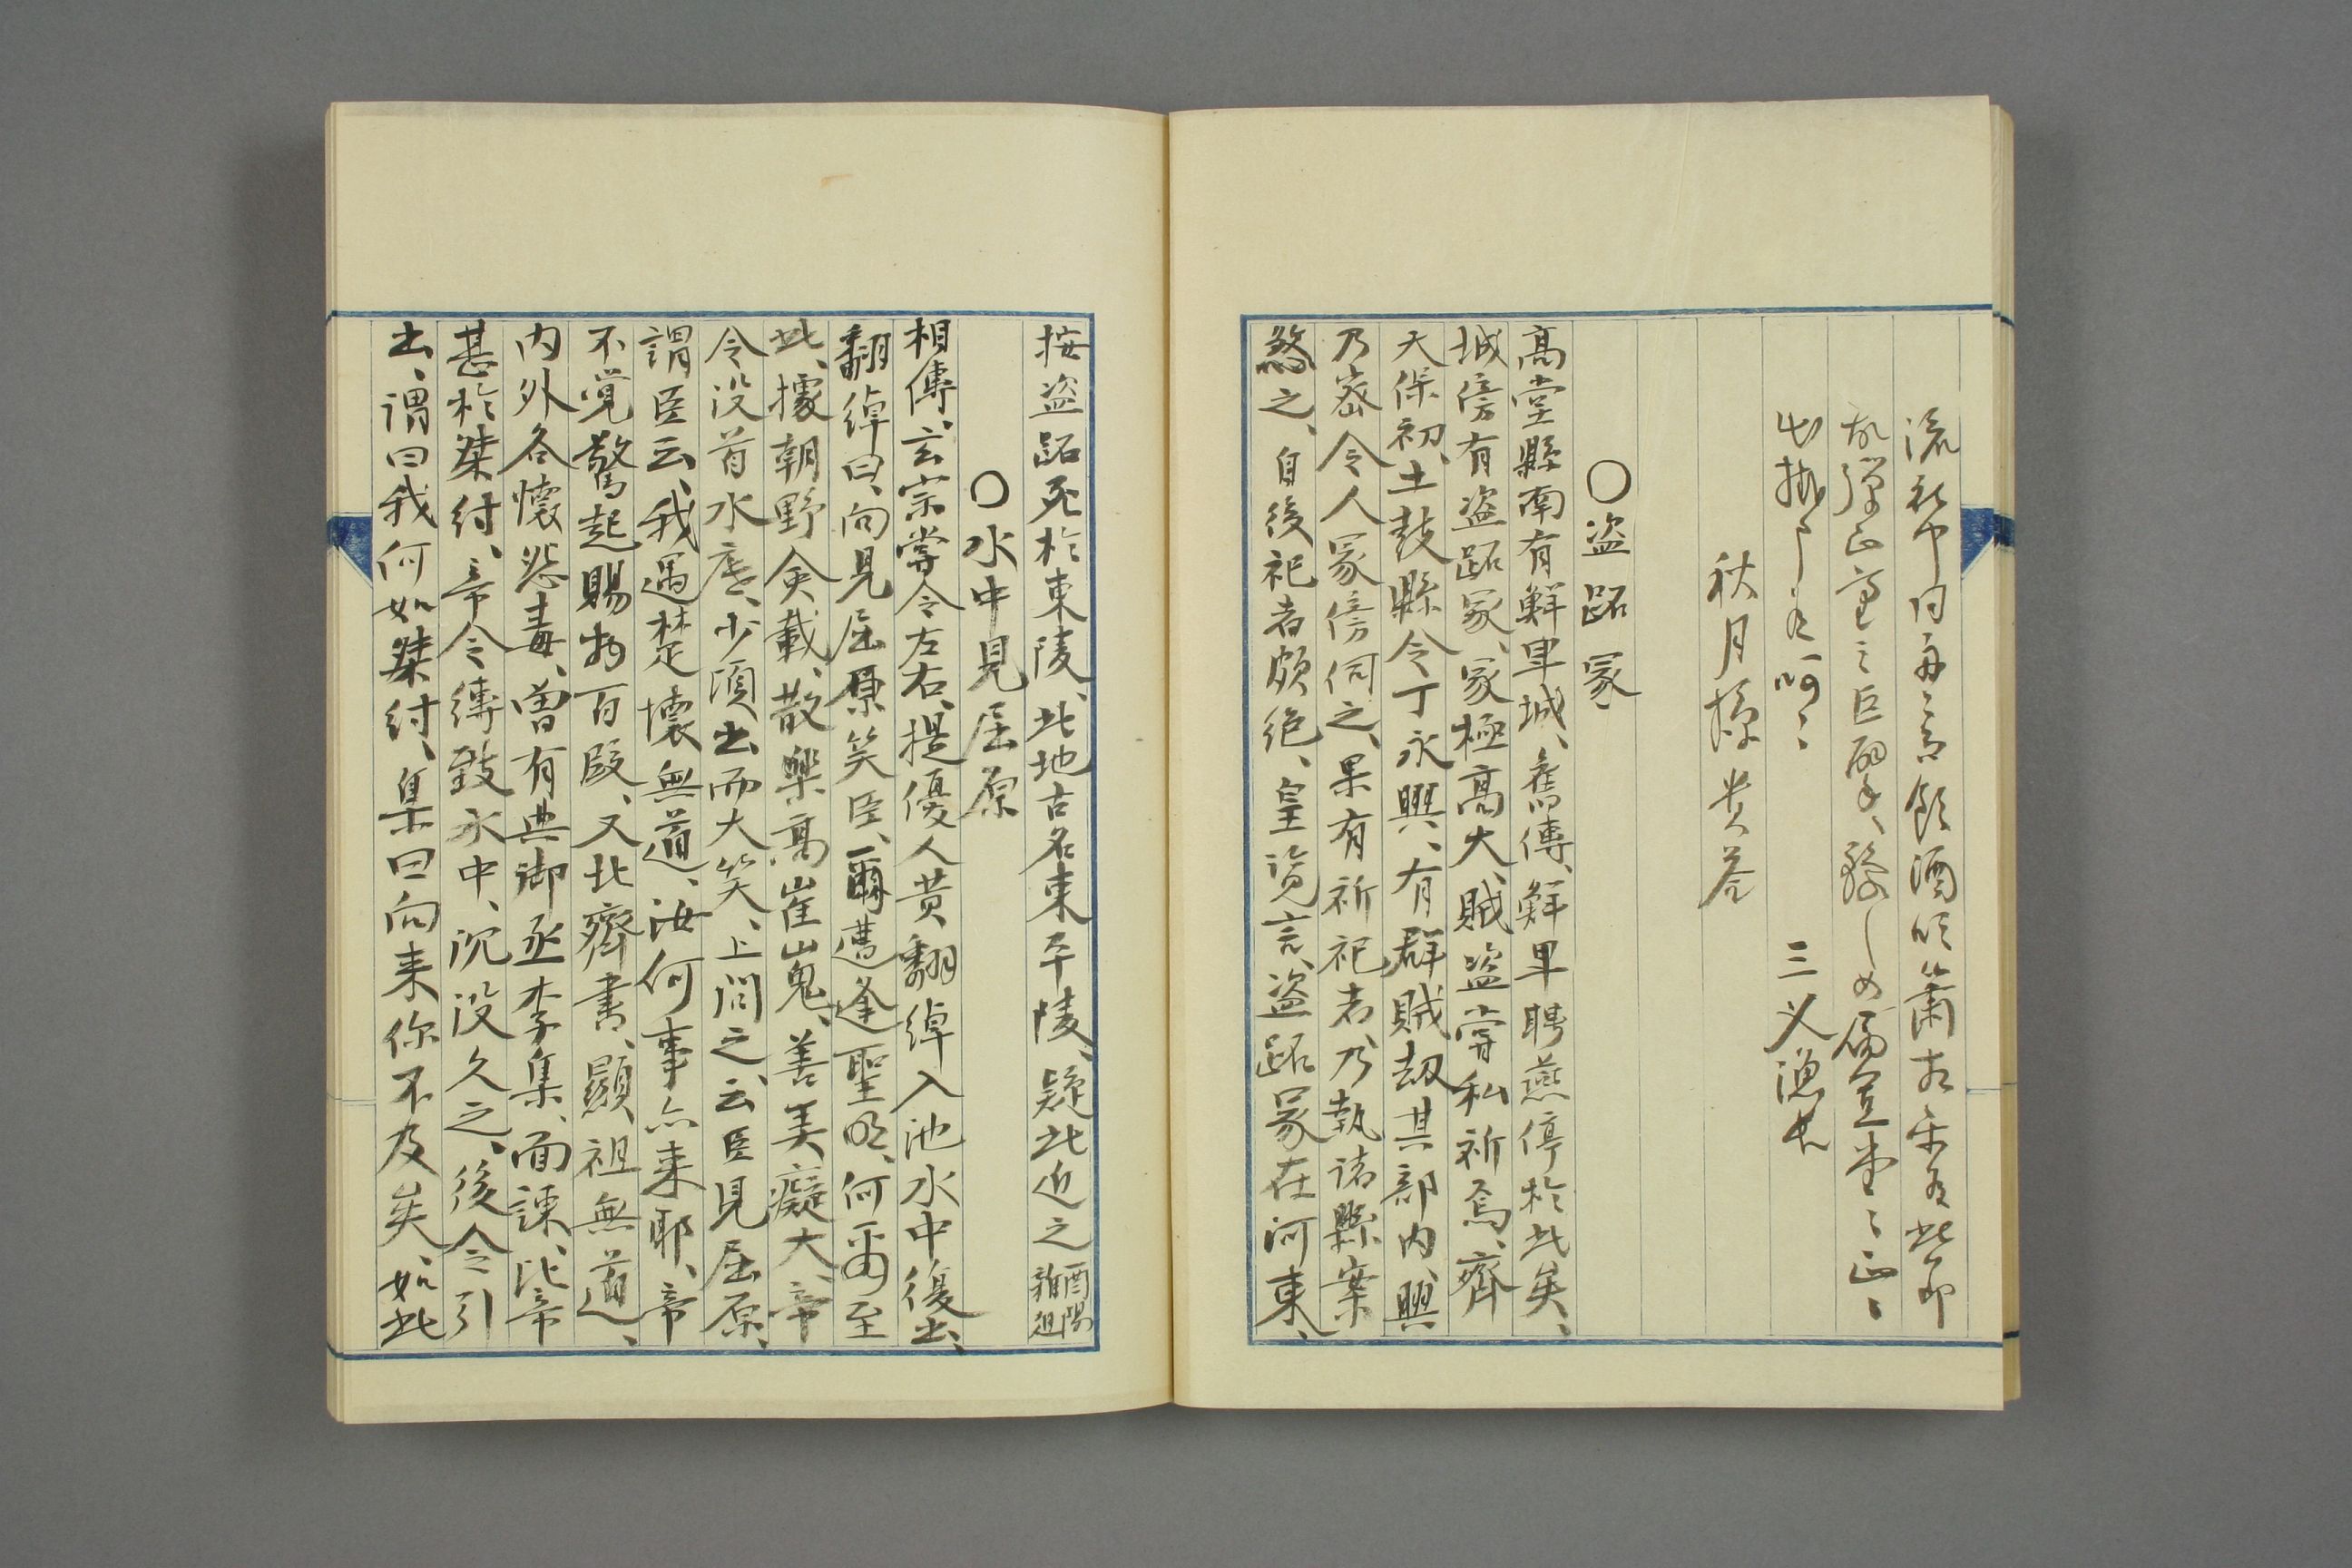 秋月様貴答
○盗跖冢
高堂縣南有鮮卑城、舊傳、鮮卑聘燕停於此矣、
城傍有盗跖冢、冢極高大、賊盗嘗私祈焉、齊
天保初、土鼓縣令丁永興、有群賊劫其部内、興
乃密令人冢傍伺之、果有祈祀者、乃執諸縣案
煞之、自後祀者頗絶、皇覽言、盗跖冢在河東、
按盗跖死於東陵、此地古名東平陵、疑此近之 酉陽雜俎
○水中見屈原
相傳、玄宗嘗令左右、提優人黄翻綽入池水中、復出、
翻綽曰、向見屈原笑臣、爾遭逢聖明、何尓至
此、據朝野僉載、散樂高崔嵬、善美癡大、帝
令没首水底、少頃出而大笑、上問之、云臣見屈原、
謂臣云、我遇楚懷無道、汝何事亦来耶、帝
不覚驚起賜物百段、又北齊書、顯祖無道、
内外各懷怨毒、曽有典御丞李集、面諌、比帝
甚於桀紂、帝令縛致水中、沉没久之、後令引
出、謂曰我何如桀紂、集曰向来你不及矣、如此